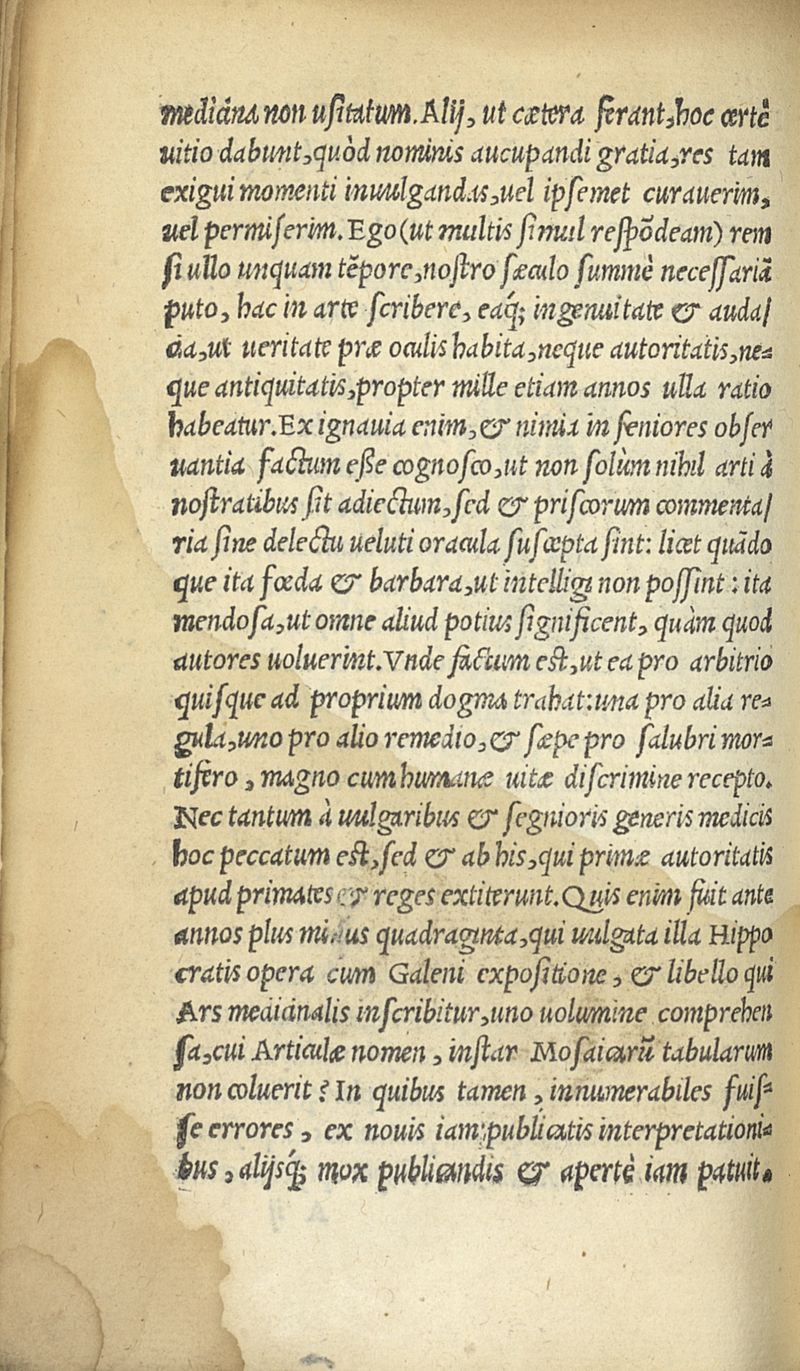 medicina non usitatum. Alij, ut cætera ferant, hoc certè
uitio dabunt, quòd nominis aucupandi gratia, res tam
exigui momenti inuulgandas, uel ipsemet curauerim,
uel permiserim. Ego (ut multis simul respõdeam) rem
si ullo unquam tẽpore, nostro sæculo summè necessariã
puto, hac in arte scribere, eaq́; ingenuitate & auda/
cia, ut ueritate præ oculis habita, neque autoritatis, ne-
que antiquitatis, propter mille etiam annos ulla ratio
habeatur. Ex ignauia enim, & nimia in seniores obser
uantia factum esse cognosco, ut non solùm nihil arti à
nostratibus sit adiectum, sed & priscorum commenta/
ria sine delectu ueluti oracula suscepta sint: licet quãdo
que ita fœda & barbara, ut intelligi non possint: ita
mendosa, ut omne aliud potius significent, quàm quod
autores uoluerint. Vnde factum est, ut ea pro arbitrio
quisque ad proprium dogma trahat: una pro alia re-
gula, uno pro alio remedio, & sæpe pro salubri mor-
tifero, magno cum humanæ uitæ discrimine recepto.
Nec tantum à uulgaribus & segnioris generis medicis
hoc peccatum est, sed & ab his, qui primæ autoritatis
apud primates & reges extiterunt. Quis enim fuit ante
annos plus minus quadraginta, qui uulgata illa Hippo
cratis opera cum Galeni expositione, & libello qui
Ars medicinalis inscribitur, uno uolumine comprehen
sa, cui Articulæ nomen, instar Mosaicarũ tabularum
non coluerit? In quibus tamen, innumerabiles fuis-
se errores, ex nouis iam publicatis interpretationi-
bus, alijsq́; mox publicandis & apertè iam patuit.